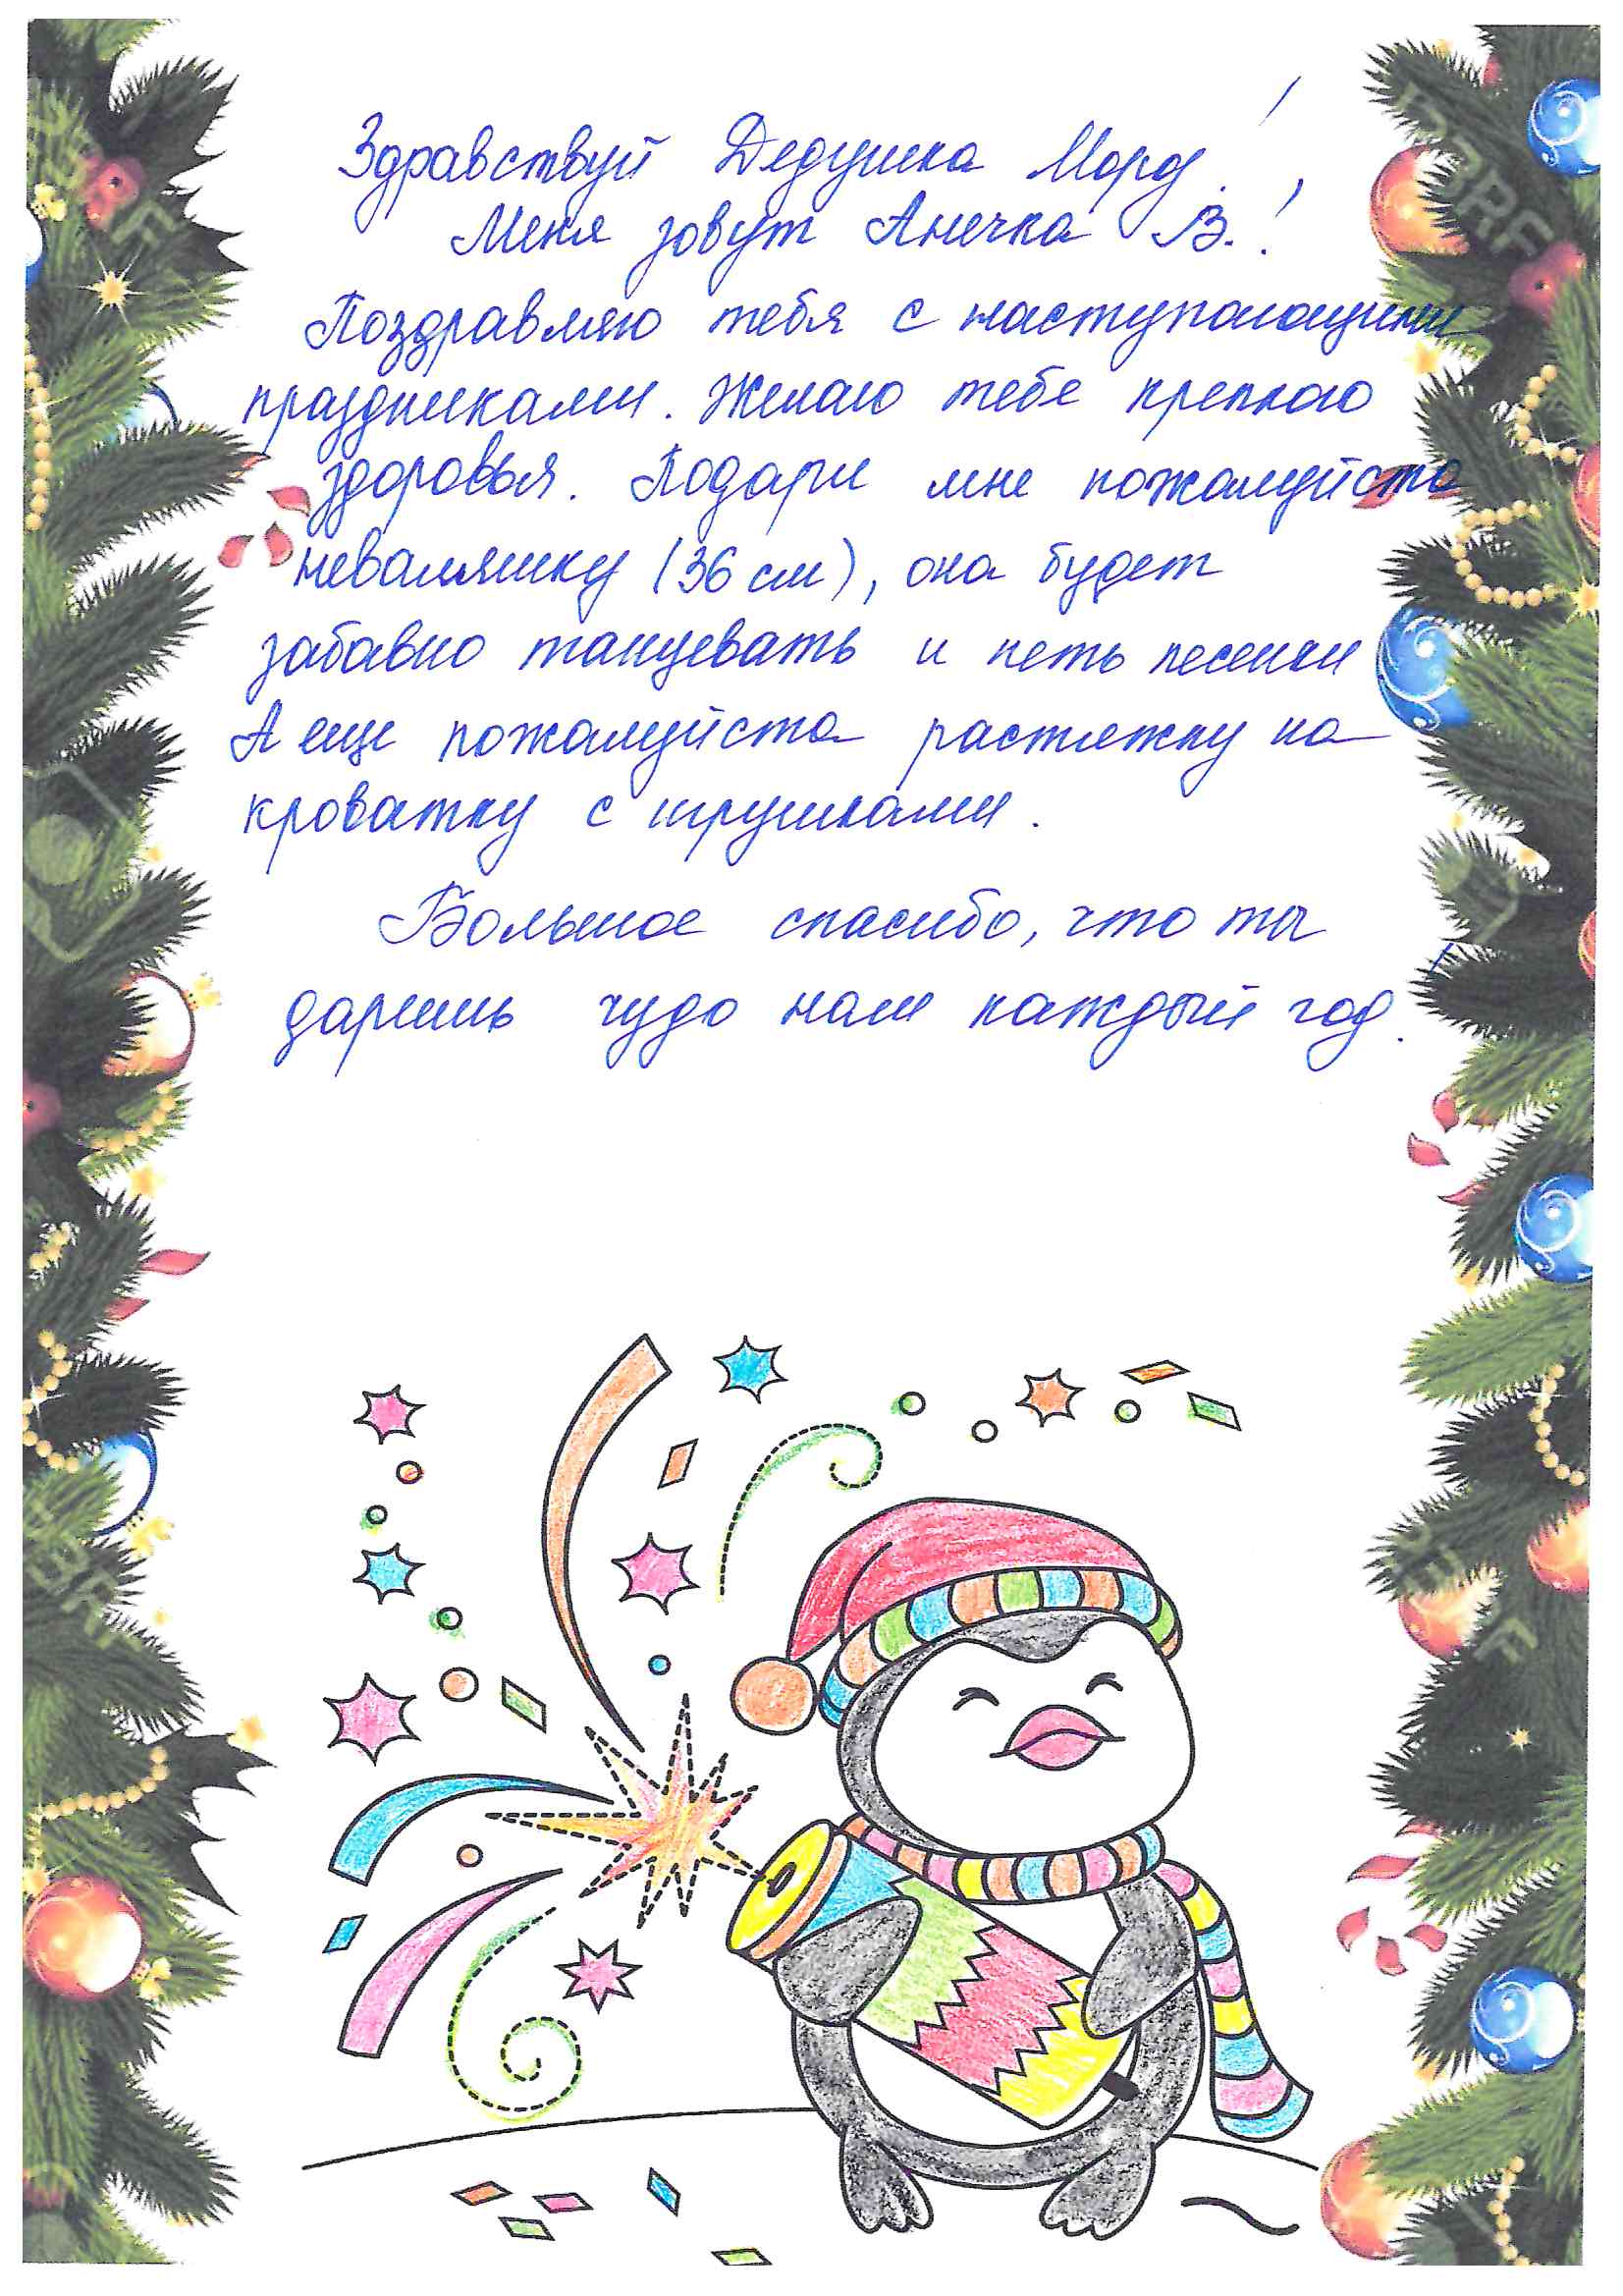 Здравствуй Дедушка Мороз!
Меня зовут Анечка В.!
Поздравляю тебя с наступающими
праздниками. Желаю тебе крепкого
здоровья. Подари мне пожалуйста
неваляшку (36 см), она будет
забавно танцевать и петь песенки
А еще пожалуйста растяжку на
кроватку с игрушками.
Большое спасибо, что ты
даришь чудо нам каждый год!